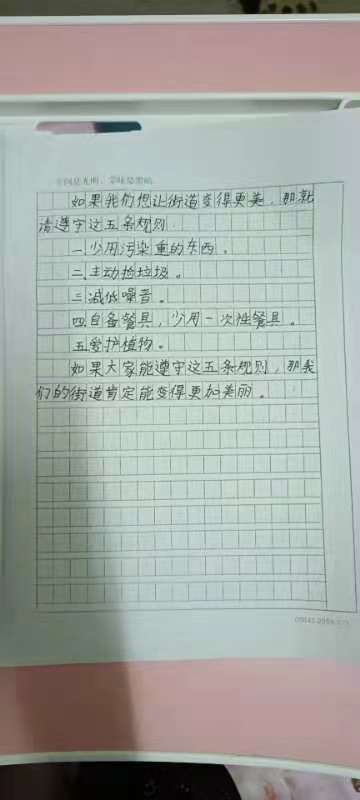 如果我们想让街道变得更美，那就
请遵守这五条规则
一.少用污染重的东西。
二.主动捡垃圾。
三.减低噪音。
四.自备餐具，少用一次性餐具。
五.爱护植物。
如果大家能遵守这五条规则，那我
们的街道肯定能变得更加美丽。